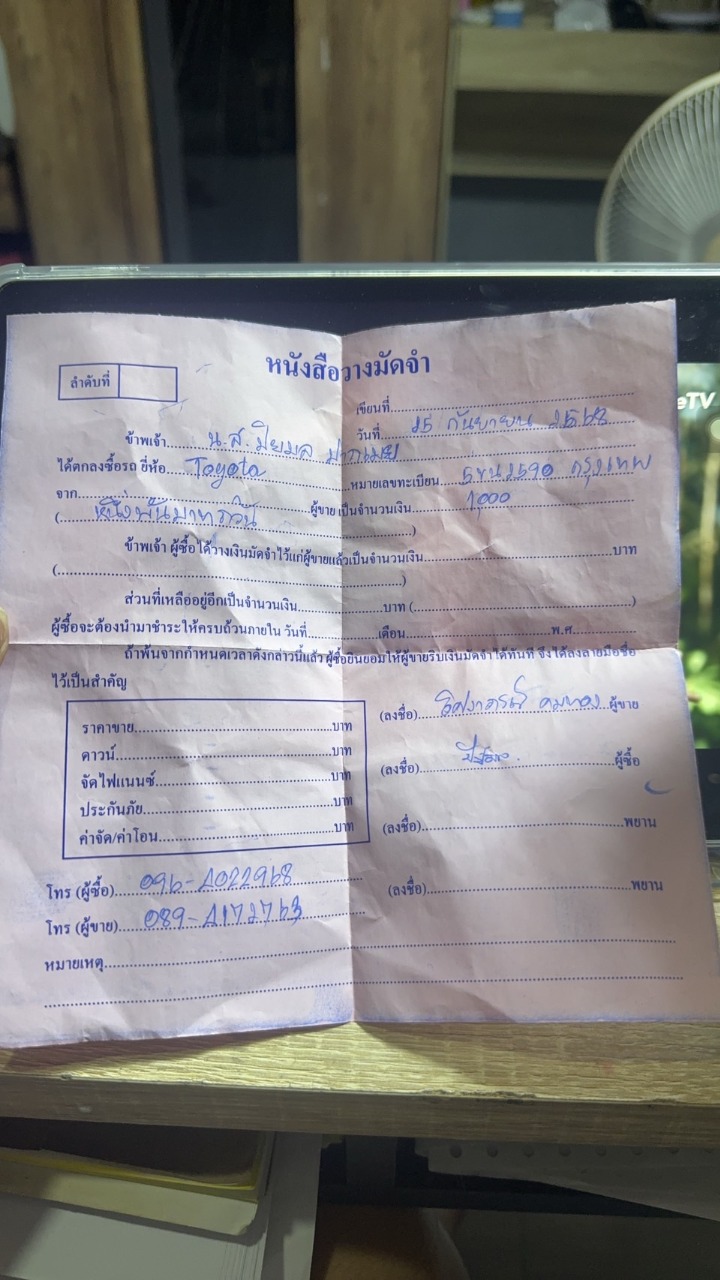 eTV
หนังสือวางมัดจำ
ลำดับที่
เขียนที่
ข้าพเจ้า น.ส. วันที่ 25 กันยายน 2568
ได้ตกลงซื้อรถ ยี่ห้อ Toyota หมายเลขทะเบียน 2590 กรุงเทพ
จาก ผู้ขาย เป็นจำนวนเงิน 1,000
( หนึ่งพันบาทถ้วน )
ข้าพเจ้า ผู้ซื้อได้วางเงินมัดจำไว้แก่ผู้ขายแล้วเป็นจำนวนเงิน บาท
( )
ส่วนที่เหลืออยู่อีกเป็นจำนวนเงิน บาท ( )
ผู้ซื้อจะต้องนำมาชำระให้ครบถ้วนภายใน วันที่ เดือน พ.ศ.
ถ้าพ้นจากกำหนดเวลาดังกล่าวนี้แล้ว ผู้ซื้อยินยอมให้ผู้ขายริบเงินมัดจำได้ทันที จึงได้ลงลายมือชื่อ
ไว้เป็นสำคัญ
ราคาขาย บาท
ดาวน์ บาท
จัดไฟแนนซ์ บาท
ประกันภัย บาท
ค่าจัด/ค่าโอน บาท
(ลงชื่อ) ผู้ขาย
(ลงชื่อ) ผู้ซื้อ
(ลงชื่อ) พยาน
(ลงชื่อ) พยาน
โทร (ผู้ซื้อ)
โทร (ผู้ขาย)
หมายเหตุ